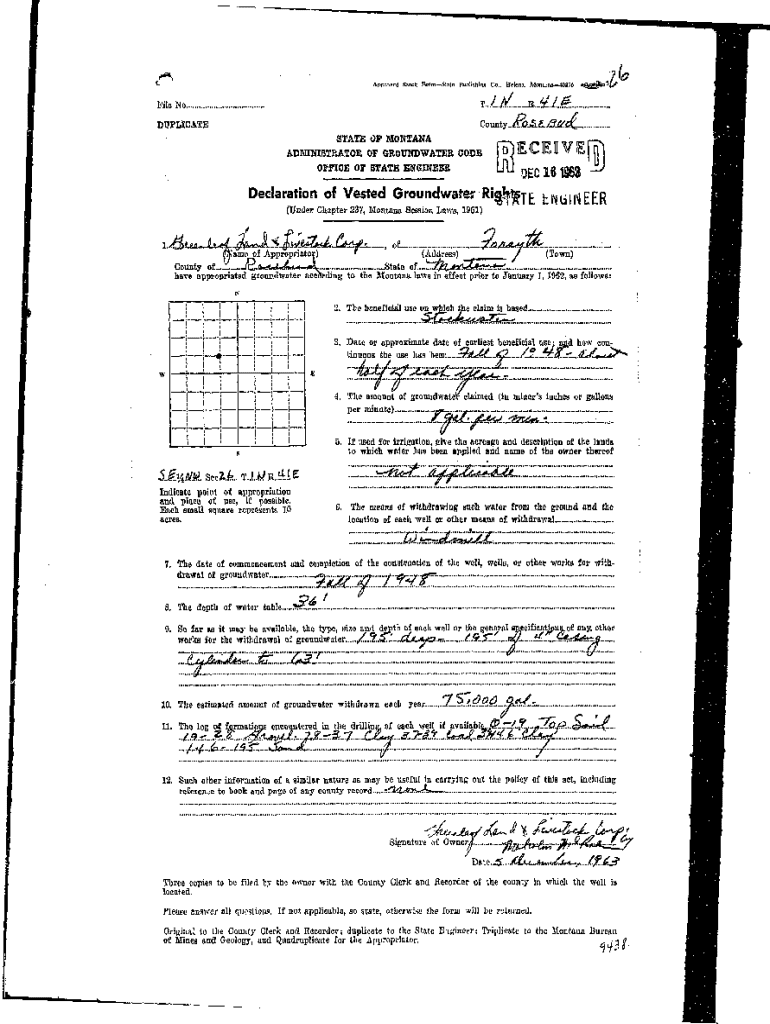 26
File No.
T. 1N R. 41E
DUPLICATE
County Rosebud
STATE OF MONTANA
ADMINISTRATOR OF GROUNDWATER CODE
OFFICE OF STATE ENGINEER
RECEIVED
DEC 16 1963
STATE ENGINEER
Declaration of Vested Groundwater Rights
(Under Chapter 237, Montana Session Laws, 1961)
1. Greenleaf Land & Livestock Corp., of Forsyth
(Name of Appropriator) (Address) (Town)
County of Rosebud State of Montana
have appropriated groundwater according to the Montana laws in effect prior to January 1, 1962, as follows:
N
2. The beneficial use on which the claim is based
Stockwater
3. Date or approximate date of earliest beneficial use; and how con-
tinuous the use has been Fall of 1948 - about
half of each year.
W E
4. The amount of groundwater claimed (in miner's inches or gallons
per minute)
8 gal. per min.
5. If used for irrigation, give the acreage and description of the lands
to which water has been applied and name of the owner thereof
S
not applicable
SE¼NW Sec 26 T 1N R 41E
Indicate point of appropriation
and place of use, if possible.
Each small square represents 10
acres.
6. The means of withdrawing such water from the ground and the
location of each well or other means of withdrawal
Windmill
7. The date of commencement and completion of the construction of the well, wells, or other works for with-
drawal of groundwater
Fall of 1948
8. The depth of water table 36'
9. So far as it may be available, the type, size and depth of each well or the general specifications of any other
works for the withdrawal of groundwater. 195' deep - 195' of 4" casing
Cylinder to 63'
10. The estimated amount of groundwater withdrawn each year 75,000 gal.
11. The log of formations encountered in the drilling of each well if available 0-19 Top Soil
19-28 Gravel - 28-37 Clay 37-39 Coal 39-146 Clay
146-195 Sand
12. Such other information of a similar nature as may be useful in carrying out the policy of this act, including
reference to book and page of any county record none
Greenleaf Land & Livestock Corp. by
Signature of Owner
Date 5 December, 1963
Three copies to be filed by the owner with the County Clerk and Recorder of the county in which the well is
located.
Please answer all questions. If not applicable, so state, otherwise the form will be returned.
Original to the County Clerk and Recorder; duplicate to the State Engineer; Triplicate to the Montana Bureau
of Mines and Geology, and Quadruplicate for the Appropriator.
9438